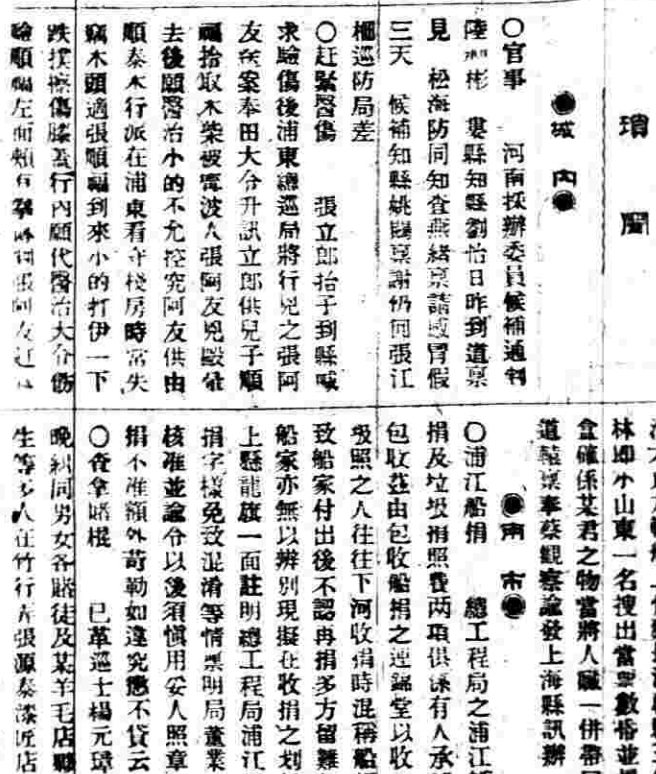 瑣聞
●城內●
○官事　河南採辦委員候補通判
陸彬　婁縣知縣劉怡日昨到道稟
見　松海防同知查燕緒稟請感冒假
三天　候補知縣姚賜稟謝仍回張江
柵巡防局差
○赶緊醫傷　張立郎抬子到縣喊
求驗傷後浦東總巡局將行兇之張阿
友案奉田大令升訊立郎供兒子順
福拾取木柴被甯波人張阿友兇毆
去後願醫治小的不允控究阿友供由
順泰木行派在浦東看守棧房時常失
竊木頭適張順福到來小的打伊一下
跌撲擦傷膝蓋行內願代醫治大令飭
驗順福左面頰有張阿友
林即小山東一名搜出當票數
盒確係某君之物當將人贓一併
道轅稟奉蔡觀察諭發上海縣訊辦
●南市●
○浦江船捐　總工程局之浦江
捐及垃圾捐照費兩項俱係有人承
包收茲由包收船捐之連錦堂以收
圾照之人往往下河收捐時混稱船
致船家付出後不認再捐多方留難
船家亦無以辨別現擬在收捐之划
上懸龍旗一面註明總工程局浦江
捐字樣免致混淆等情稟明局董業
核准並諭令以後須慎用妥人照章
捐不准額外苛勒如違究懲不貸云
○查拿賭棍　已革巡士楊元璋
晚糾同男女各賭徒及某羊毛店
生等多人在竹行弄張源泰漆匠店